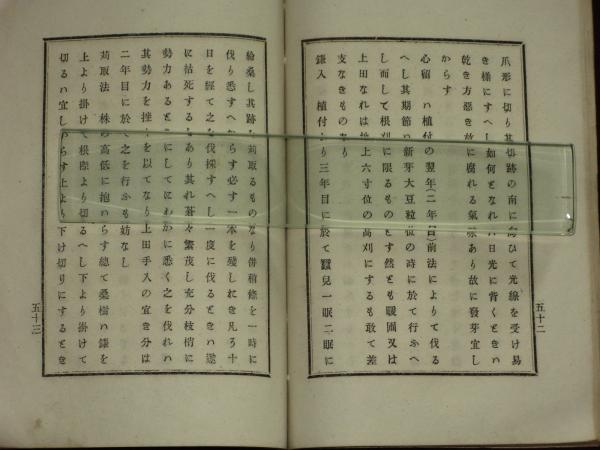 爪形に切り其切跡の南に向ひて光線を受け易
き樣にすへし如何となれハ日光に背くときハ
乾き方惡き故に腐れる氣味あり故に發芽宜し
からす
心留 ハ植付の翌年(二年目)前法によりて伐る
へし其期節ハ新芽大豆粒位の時に於て行ふへ
し而して根刈に限るものとす然とも暖圃又は
上田なれは地上六寸位の高刈にするも敢て差
支なきものあり
鎌入 植付より三年目に於て蠶兒一眠二眠に
五十二
給桑し其跡を苅取るものなり併稍條を一時に
伐り悉すへからす必す一本を殘し置き凡ろ十
日を經て之を伐採すへし一度に伐るときハ遂
に枯死するもあり其れ蒼々繁茂し充分枝梢に
勢力あるときにしてにわかに悉く之を伐れハ
其勢力を挫くを以てなり上田手入の宜き分は
二年目に於て之を行ふも妨なし
苅取法 株の高低に抱いらす總て桑樹ハ鎌を
上より掛けて根際より切るへし下より掛けて
切るハ宜しからす上より下け切りにするとき
五十三